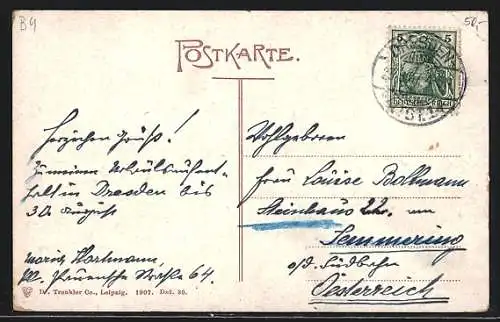 B4
50,-
POSTKARTE.
5 5
DRESDEN
Deutsches Reich
Herzlichen Gruß!
Zu meinem Urlaubsaufent-
halt in Dresden bis
30. August
Moritz Hartmann,
Pl. Straße 64.
Wohlgeboren
Frau Louise Bollmann
Steinhaus 22. am
Semmering
a/d. Südbahn
Oesterreich
Dr. Trenkler Co., Leipzig. 1907. Dsd. 38.